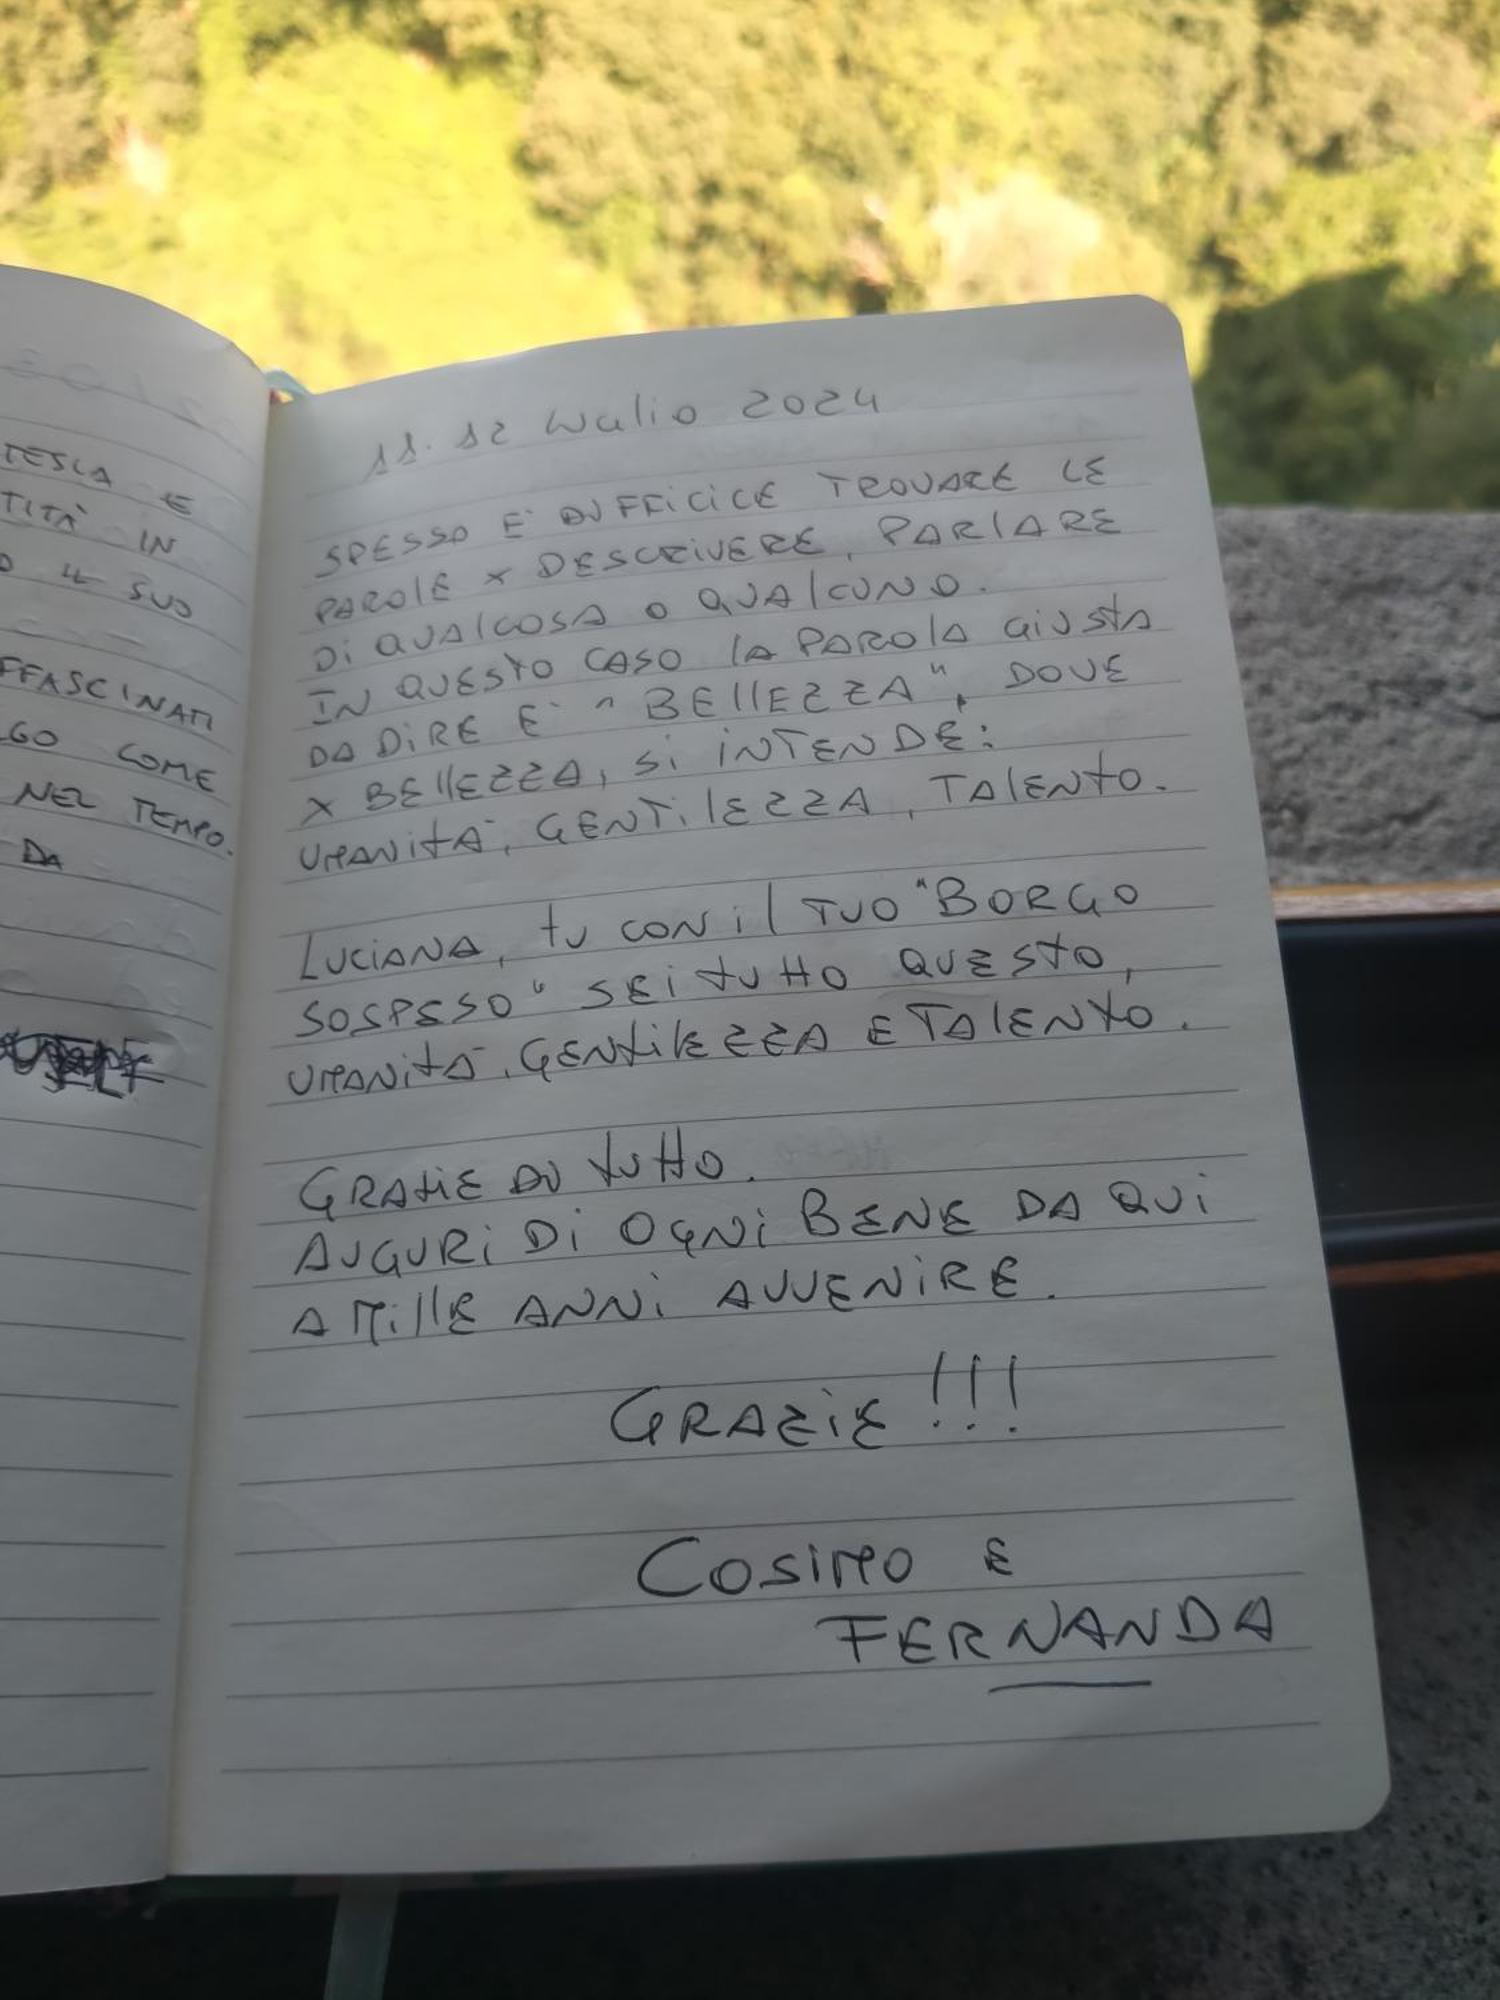 TESIA E
TITÀ IN
IL SUO
FFASCINATI
GO COME
NEL TEMPO.
DA
11.12 Luglio 2024
SPESSO E' DIFFICILE TROVARE LE
PAROLE X DESCRIVERE, PARLARE
DI QUALCOSA O QUALCUNO.
IN QUESTO CASO LA PAROLA GIUSTA
DA DIRE E' "BELLEZZA", DOVE
X BELLEZZA, SI INTENDE:
UMANITA', GENTILEZZA, TALENTO.
LUCIANA, TU CON IL TUO "BORGO
SOSPESO" SEI TUTTO QUESTO,
UMANITA', GENTILEZZA E TALENTO.
GRATIE DI TUTTO.
AUGURI DI OGNI BENE DA QUI
A MILLE ANNI AVVENIRE.
GRAZIE!!!
COSIMO E
FERNANDA